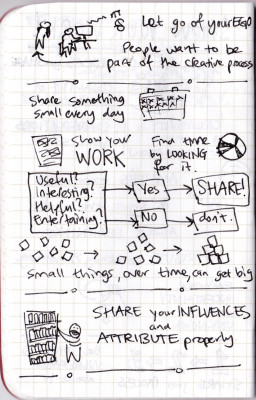 Let go of your EGO
People want to be
part of the creative process
Share something
small every day
Show your
WORK
Find time
by LOOKING
for it.
Useful?
Interesting?
Helpful?
Entertaining?
Yes
SHARE!
No
don't.
Small things, over time, can get big
SHARE your INFLUENCES
and
ATTRIBUTE properly